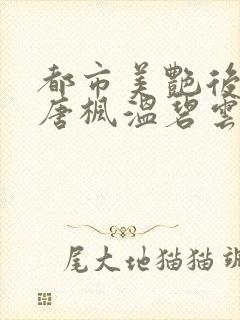 都市美艷後
唐楓溫碧雲
尾大地猫猫